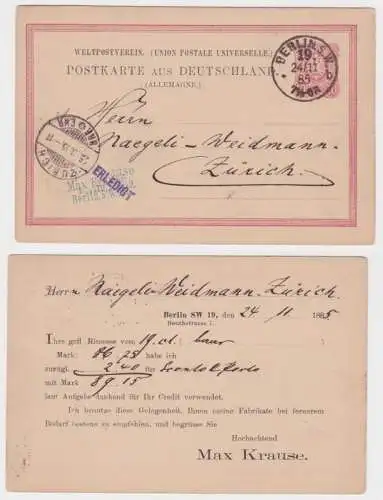 WELTPOSTVEREIN. (UNION POSTALE UNIVERSELLE.)
POSTKARTE AUS DEUTSCHLAND
(ALLEMAGNE.)
BERLIN, S.W.
19.
24/11
85
b
Herrn
Naegeli-Weidmann.
Zürich.
ZÜRICH
Max Krause
Berlin S.W.
ERLEDIGT
Herrn Naegeli-Weidmann. Zürich.
Berlin SW 19, den 24 11 1885
Beuthstrasse 7.
Ihre gefl Rimesse vom 19. ct.
Mark: 86 75 habe ich
zuzügl. 2.40 für Sconto & Porto
mit Mark 89.15
laut Aufgabe dankend für Ihr Credit verwendet.
Ich benutze diese Gelegenheit, Ihnen meine Fabrikate bei fernerem
Bedarf bestens zu empfehlen, und begrüsse Sie
Hochachtend
Max Krause.